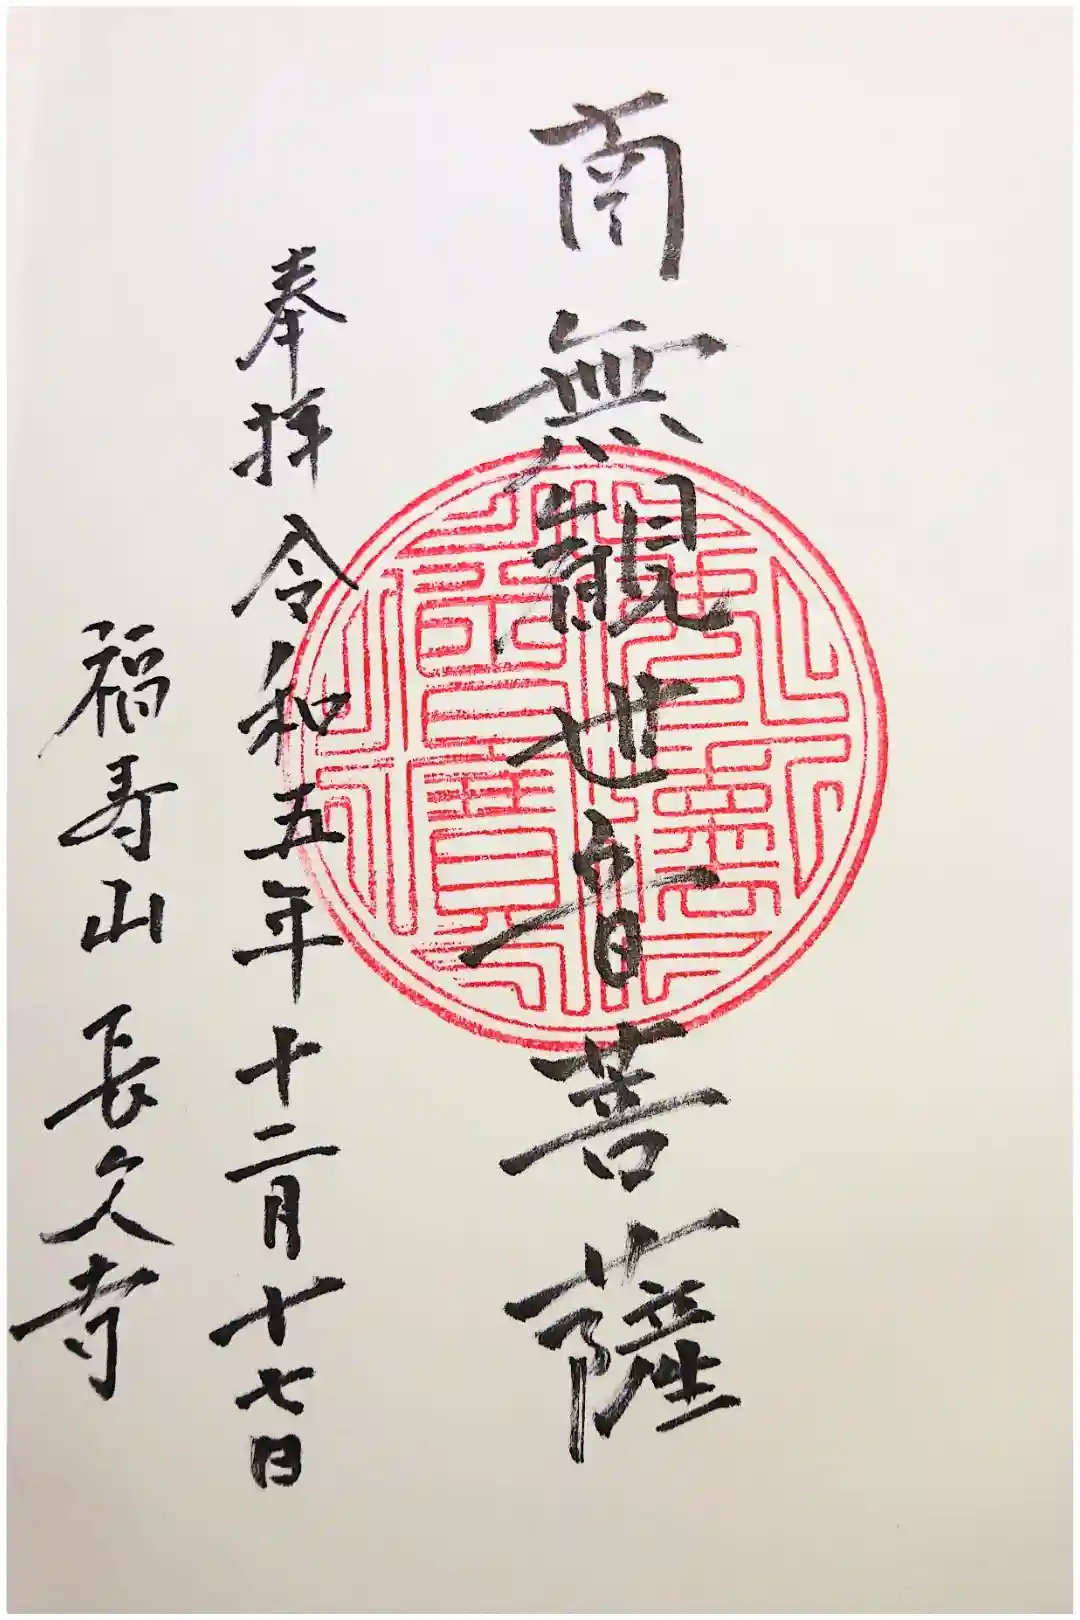 南無観世音菩薩
奉拝 令和五年十二月十七日
福寿山 長久寺